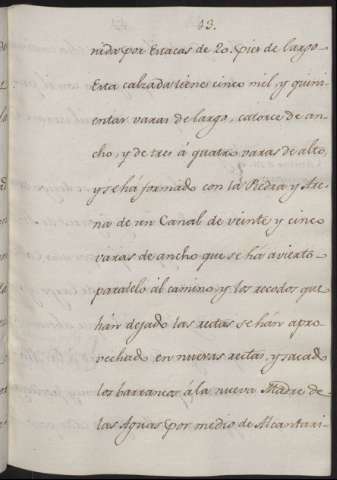 13.
nida por Estacas de 20. pies de largo
Esta calzada tiene cinco mil, y quini-
entas varas de largo, catorce de an-
cho, y de tres á quatro varas de alto,
y se há formado con la Piedra y Are-
na de un Canal de veinte y cinco
varas de ancho que se há avierto
paralelo al camino y los recodos que
hán dejado las rectas se hán apro-
vechado en nuevas rectas, y sacado
los barrancos á la nueva Madre de
las Aguas por medio de Alcantari-